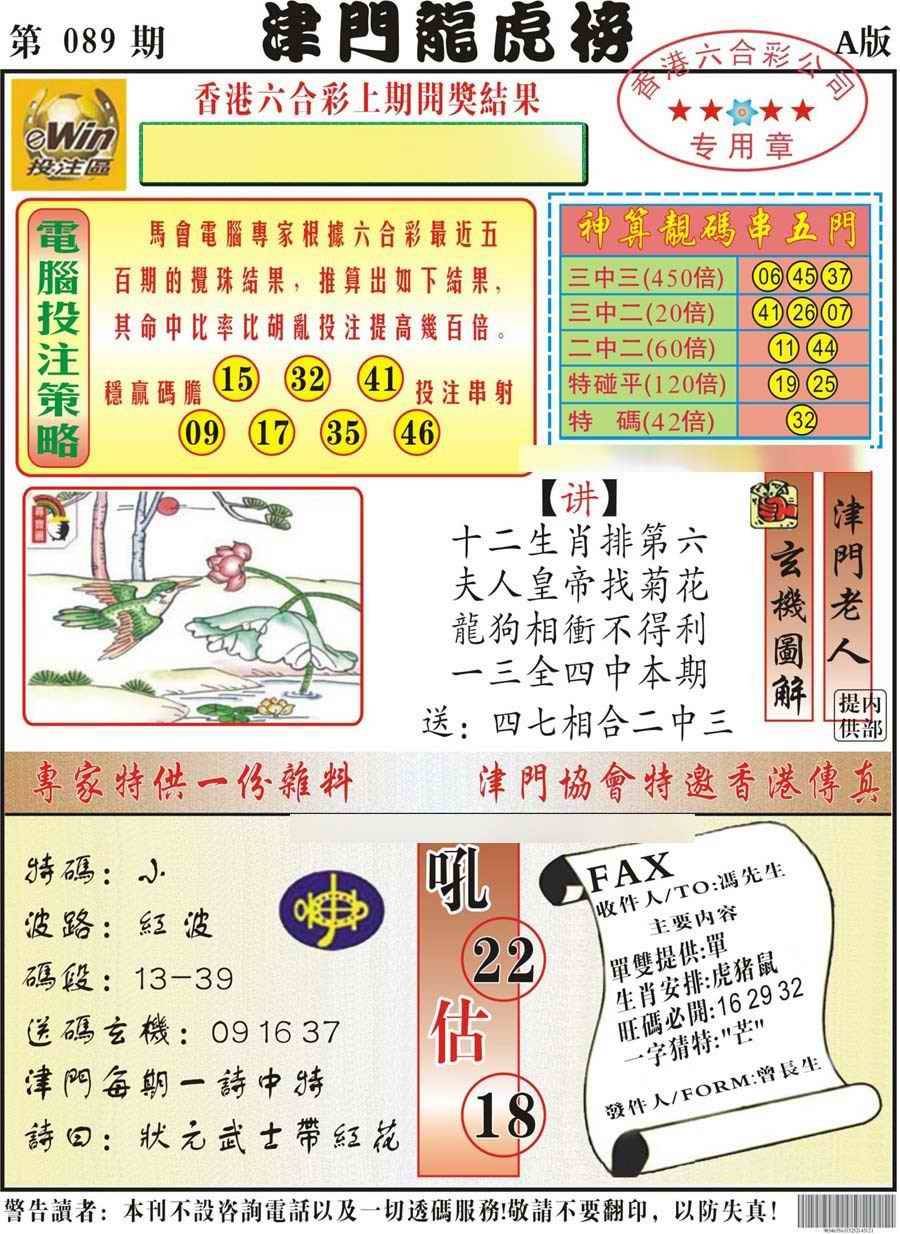 第 089 期
津門龍虎榜
A版
香港六合彩上期開獎結果
eWin
投注區
香港六合彩公司
专用章
電腦投注策略
馬會電腦專家根據六合彩最近五
百期的攪珠結果，推算出如下結果，
其命中比率比胡亂投注提高幾百倍。
穩贏碼膽 15 32 41 投注串射
09 17 35 46
神算靚碼串五門
三中三(450倍) 06 45 37
三中二(20倍) 41 26 07
二中二(60倍) 11 44
特碰平(120倍) 19 25
特 碼(42倍) 32
【讲】
十二生肖排第六
夫人皇帝找菊花
龍狗相衝不得利
一三全四中本期
送：四七相合二中三
玄機圖解
津門老人
内部提供
專家特供一份雜料
津門協會特邀香港傳真
特碼：小
波路：紅波
碼段：13-39
送碼玄機：09 16 37
津門每期一詩中特
詩曰：狀元武士帶紅花
吼
22
估
18
FAX
收件人/TO:馮先生
主要内容
單雙提供:單
生肖安排:虎猪鼠
旺碼必開:16 29 32
一字猜特:"芒"
發件人/FORM:曾長生
警告讀者：本刊不設咨詢電話以及一切透碼服務!敬請不要翻印，以防失真!